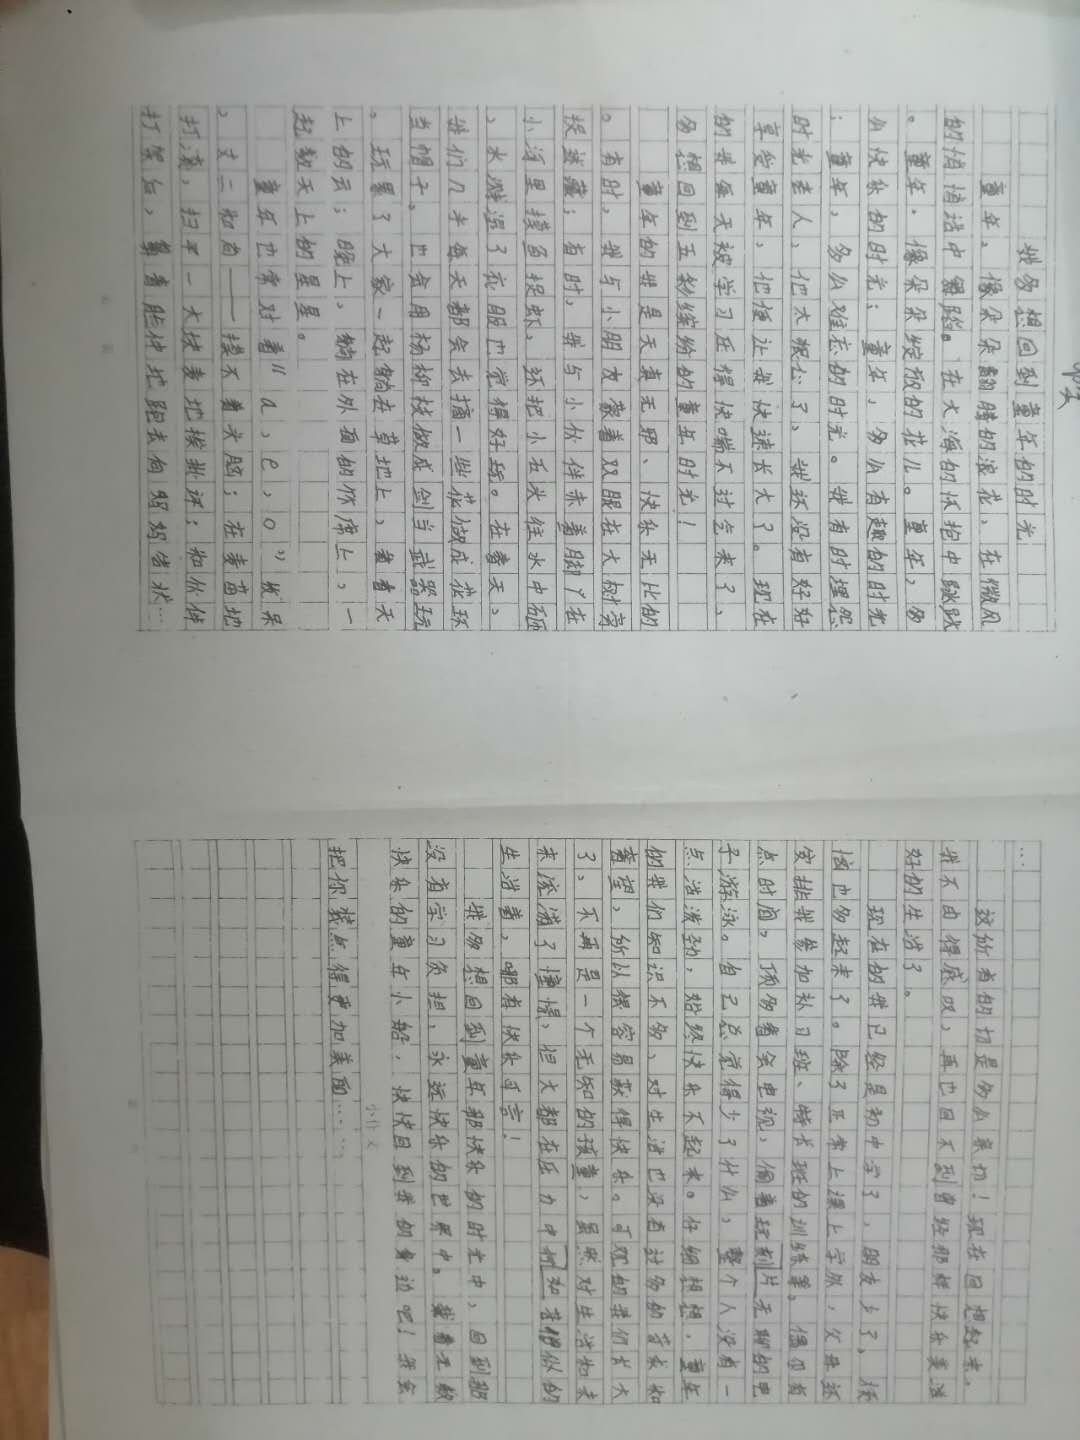 我多想回到童年的时光
童年，像朵朵翻腾的浪花，在微风
的悄悄话中跟跄。在大海的怀抱中跳跃
。童年，像朵朵绽放的花儿。童年，多
么快乐的时光；童年，多么有趣的时光
；童年，多么难忘的时光。我有时埋怨
时光老人，他太狠心了，我还没有好好
享受童年，他便让我快速长大了。现在
的我每天被学习压得快喘不过气来了，
多想回到五彩缤纷的童年时光！
童年的我是天真无邪、快乐无比的
。有时，我与小朋友蒙着双眼在大树旁
捉迷藏；有时，我与小伙伴赤着脚丫在
小河里摸鱼捉虾，还把小石头往水中砸
，水溅湿了衣服也觉得好玩。在春天，
我们几乎每天都会去摘一些花做成花环
当帽子。也会用杨柳枝做成剑当武器玩
。玩累了大家一起躺在草地上，看着天
上的云；晚上，躺在外面的竹席上，一
起数天上的星星。
童年也常对着“a，e，o”发呆
，丈二和尚——摸不着头脑；在麦苗地
打滚，扫平一大块麦地挨批评；和伙伴
打架后，捂着脸使地跑去向妈妈告状…
…
这所有的切是多么亲切！现在回想起来，
我不由得感叹，再也回不到曾经那样快乐美滋
好的生活了。
现在的我已经是初中学了，朋友少了，烦
恼也多起来了。除了正常上课上学外，父母还
安排我参加补习班、特长班的训练等。偶尔有
点时间，顶多看会电视，偷着玩刻片无聊的电
子游泳。自己总觉得少了什么，整个人没有一
点活泼劲，始终快乐不起来。仔细想想，童年
的我们知识不多，对生活也没有过多的苛求和
奢望，所以很容易获得快乐。可现在的我们长大
了，不再是一个无知的孩童，虽然对生活和未
来充满了憧憬，但大都在压力中
生活着，哪有快乐可言！
我多想回到童年那快乐的时光中，回到那
没有学习负担，永远快乐的世界中。载着无数
快乐的童年小船，快快回到我的身边吧！我会
把你装点得更加美丽……